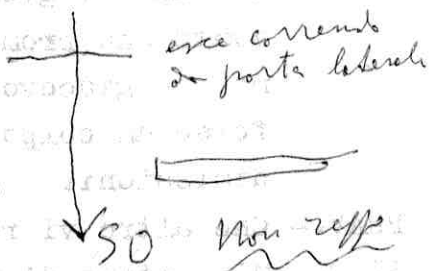 esce correndo
da porta laterale
SO Non